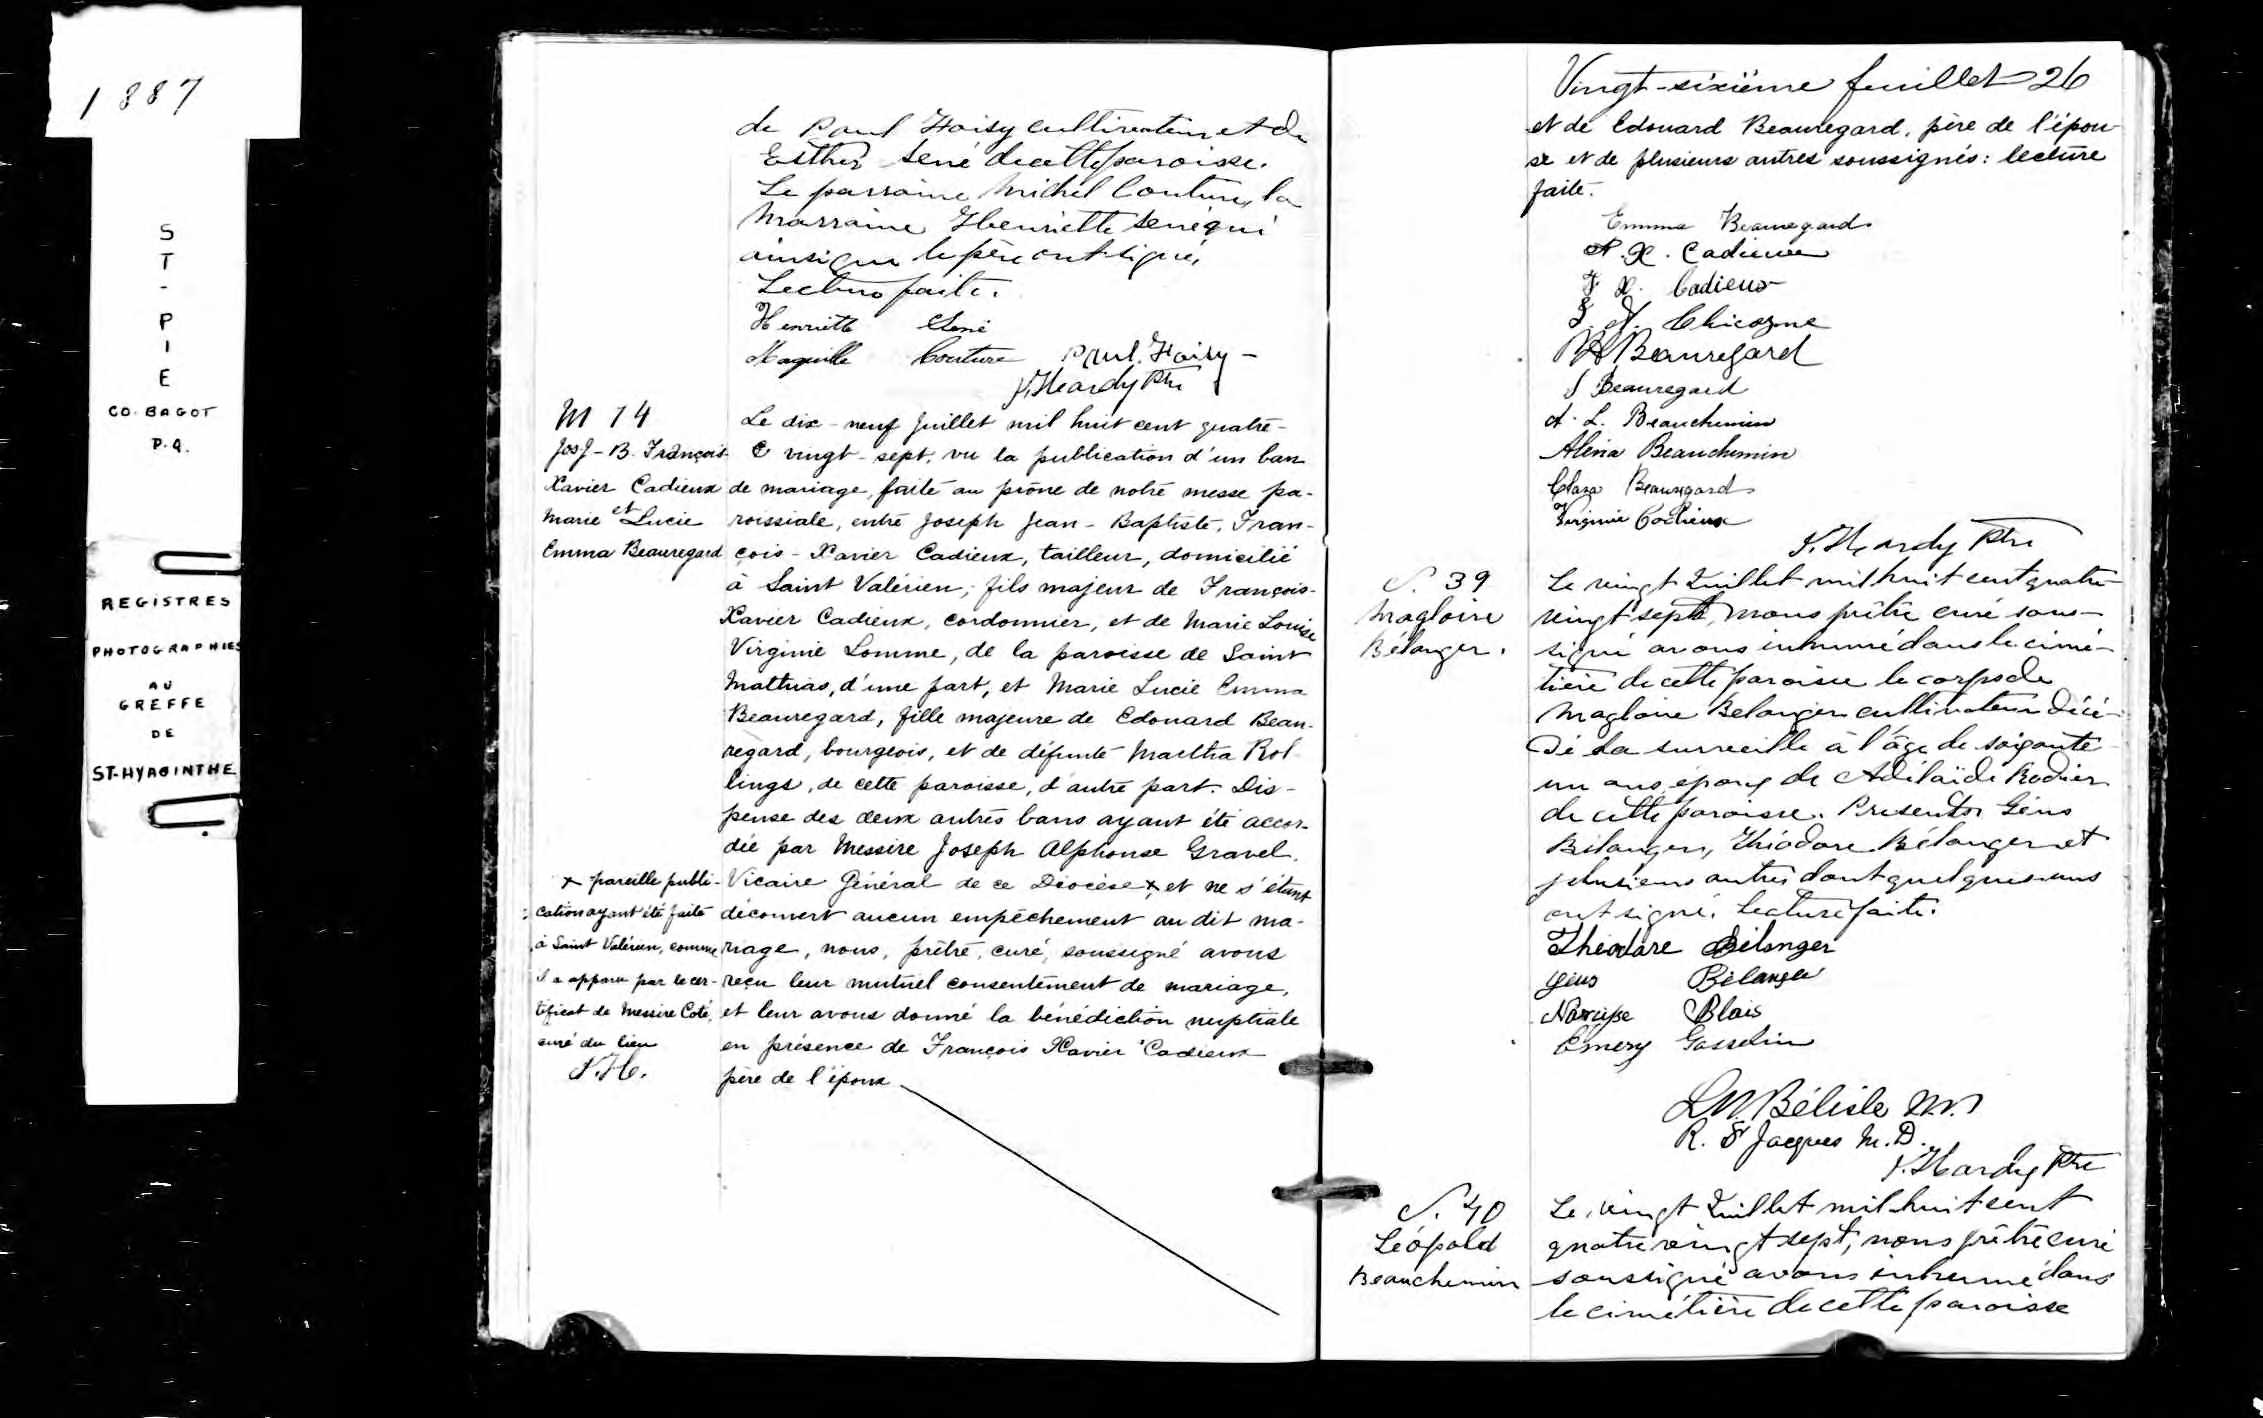 1887
S
T
-
P
I
E
CO. BAGOT
P.Q.
REGISTRES
PHOTOGRAPHIES
AU
GREFFE
DE
ST-HYACINTHE
de Paul Hoisy cultivateur et de
Esther Sené de cette paroisse.
Le parraine Michel Couture, la
Marraine Henriette Sené qui
ainsi que le père ont signé,
Lecture faite.
Henriette Sené
Couture Paul. Hoisy
J. Hardy Ptre
M 14
Josh-B. François-
Xavier Cadieux
et
Marie Lucie
Emma Beauregard
Le dix-neuf Juillet mil huit cent quatre-
vingt-sept, vu la publication d'un ban
de mariage, faite au prône de notre messe pa-
roissiale, entre Joseph Jean-Baptiste, Fran-
çois-Xavier Cadieux, tailleur, domicilié
à Saint Valérien, fils majeur de François-
Xavier Cadieux, cordonnier, et de Marie Louise
Virginie Lomme, de la paroisse de Saint
Mathias, d'une part, et Marie Lucie Emma
Beauregard, fille majeure de Edouard Beau-
regard, bourgeois, et de défunte Martha Rol-
lings, de cette paroisse, d'autre part. Dis-
pense des deux autres bans ayant été accor-
dée par Messire Joseph Alphonse Gravel,
Vicaire Général de ce Diocèse x, et ne s'étant
découvert aucun empêchement au dit ma-
riage, nous, prêtre, curé, soussigné avons
reçu leur mutuel consentement de mariage,
et leur avons donné la bénédiction nuptiale
en présence de François Xavier Cadieux
père de l'époux
x pareille publi-
cation ayant été faite
à Saint Valérien, comme
il a apparu par le cer-
tificat de Messire Coté,
curé du lieu
J.H.
Vingt-sixième feuillet 26
et de Edouard Beauregard, père de l'épou-
se et de plusieurs autres soussignés: lecture
faite.
Emma Beauregard
X. Cadieux
F X. Cadieux
Chicogne
Beauregard
Beauregard
A. L. Beauchemin
Beauchemin
Clara Beauregard
Virginie Cadieux
J. Hardy Ptre
S. 39
Magloire
Bélanger.
Le vingt Juillet mil huit cent quatre
vingt sept, nous prêtre curé sous-
signé avons inhumé dans le cimé-
tière de cette paroisse le corps de
Magloire Belanger cultivateur décé-
dé la surveille à l'âge de soixante
un ans époux de Adélaïde Rodier
de cette paroisse. Presents Géus
Bélanger, Théodore Bélanger et
plusieurs autres dont quelques-uns
ont signé. Lecture faite.
Théodore Bélanger
Géus Bélanger
Narcisse Blais
Emery Gosselin
Bélisle N.P.
R. St Jacques M.D.
J. Hardy Ptre
S. 40
Léopold
Beauchemin
Le vingt Juillet mil huit cent
quatre vingt sept, nous prêtre curé
soussigné avons inhumé dans
le cimétière de cette paroisse